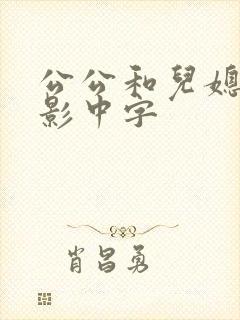 公公和兒媳
影中字
肖昌勇